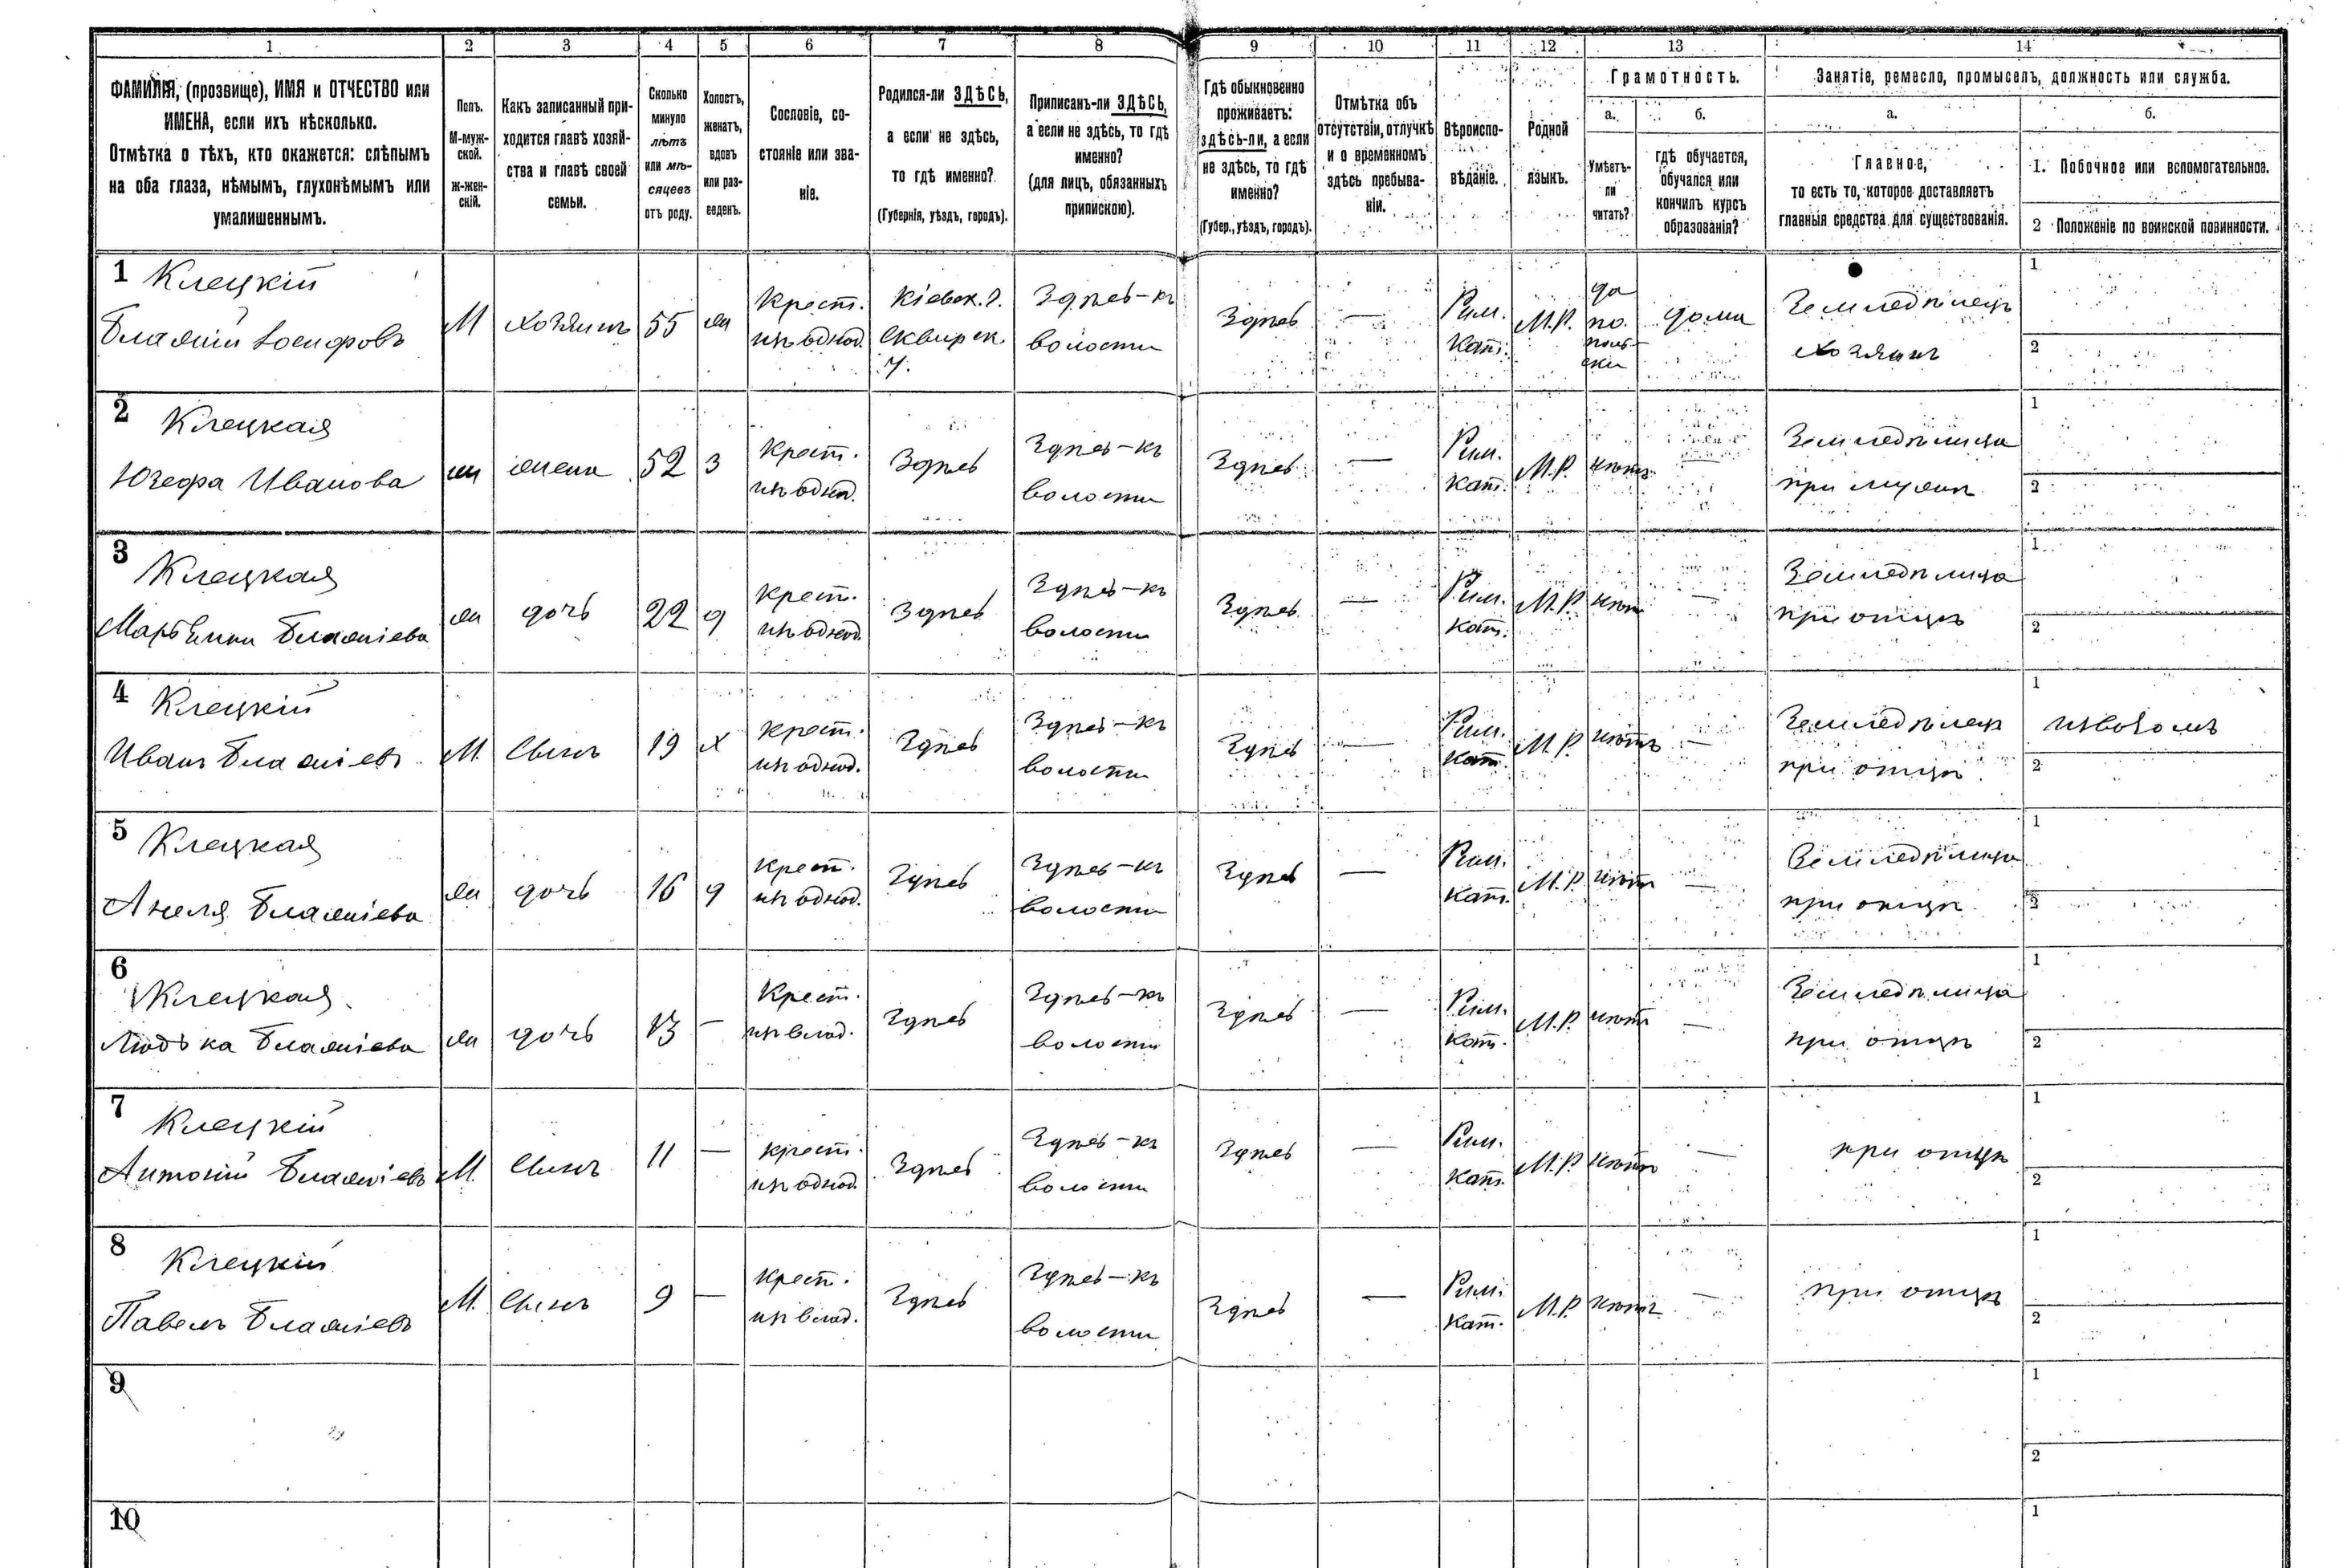 1 2 3 4 5 6 7 8 9 10 11 12 13 14
ФАМИЛІЯ, (прозвище), ИМЯ и ОТЧЕСТВО или
ИМЕНА, если ихъ нѣсколько.
Отмѣтка о тѣхъ, кто окажется: слѣпымъ
на оба глаза, нѣмымъ, глухонѣмымъ или
умалишеннымъ.
Полъ.
М-муж-
ской.
Ж-жен-
скій.
Какъ записанный при-
ходится главѣ хозяй-
ства и главѣ своей
семьи.
Сколько
минуло
лѣтъ
или мѣ-
сяцевъ
отъ роду.
Холостъ,
женатъ,
вдовъ
или раз-
веденъ.
Сословіе, со-
стояніе или зва-
ніе.
Родился-ли ЗДѢСЬ,
а если не здѣсь,
то гдѣ именно?
(Губернія, уѣздъ, городъ).
Приписанъ-ли ЗДѢСЬ,
а если не здѣсь, то гдѣ
именно?
(для лицъ, обязанныхъ
припискою).
Гдѣ обыкновенно
проживаетъ:
здѣсь-ли, а если
не здѣсь, то гдѣ
именно?
(Губер., уѣздъ, городъ).
Отмѣтка объ
отсутствіи, отлучкѣ
и о временномъ
здѣсь пребыва-
ніи.
Вѣроиспо-
вѣданіе.
Родной
языкъ.
Грамотность.
а.
Умѣетъ-
ли
читать?
б.
гдѣ обучается,
обучался или
кончилъ курсъ
образованія?
Занятіе, ремесло, промыселъ, должность или служба.
а.
Главное,
то есть то, которое доставляетъ
главныя средства для существованія.
б.
1. Побочное или вспомогательное.
2 Положеніе по воинской повинности.
1 Клецкій
Блажій Іосифовъ
М
хозяинъ
55
ж
Крест.
из однод.
Кіевск. г.
Сквирск.
у.
Здѣсь-къ
волости
Здѣсь
—
Рим.
Кат.
М.Р.
да
по
поль-
ски
дома
Земледѣлецъ
хозяинъ
1
2
2 Клецкая
Юзефа Иванова
ж
жена
52
з
Крест.
из однод.
Здѣсь
Здѣсь-къ
волости
Здѣсь
—
Рим.
Кат.
М.Р.
нѣтъ
—
Земледѣлица
при мужѣ
1
2
3 Клецкая
Блажіева
ж
дочь
22
д
крест.
из однод.
Здѣсь
Здѣсь-къ
волости
Здѣсь
—
Рим.
Кат.
М.Р.
нѣт
—
Земледѣлица
при отцѣ
1
2
4 Клецкій
Иванъ Блажіевъ
М.
Сынъ
19
х
крест.
из однод.
Здѣсь
Здѣсь-къ
волости
Здѣсь
—
Рим.
Кат.
М.Р.
нѣтъ
—
Земледѣлец
при отцѣ
1 извозомъ
2
5 Клецкая
Анеля Блажіева
ж
дочь
16
д
крест.
из однод.
Здѣсь
Здѣсь-къ
волости
Здѣсь
—
Рим.
Кат.
М.Р.
нѣт
—
Земледѣлица
при отцѣ
1
2
6 Клецкая
Людвка Блажіева
ж
дочь
13
—
Крест.
из влад.
Здѣсь
Здѣсь-къ
волости
Здѣсь
—
Рим.
Кат.
М.Р.
нѣт
—
Земледѣлица
при отцѣ
1
2
7 Клецкій
Антоній Блажіевъ
М.
Сынъ
11
—
крест.
из однод.
Здѣсь
Здѣсь-къ
волости
Здѣсь
—
Рим.
Кат.
М.Р.
нѣтъ
—
при отцѣ
1
2
8 Клецкій
Павелъ Блажіевъ
М.
Сынъ
9
—
крест.
из влад.
Здѣсь
Здѣсь-къ
волости
Здѣсь
—
Рим.
Кат.
М.Р.
нѣтъ
—
при отцѣ
1
2
9
1
2
10
1